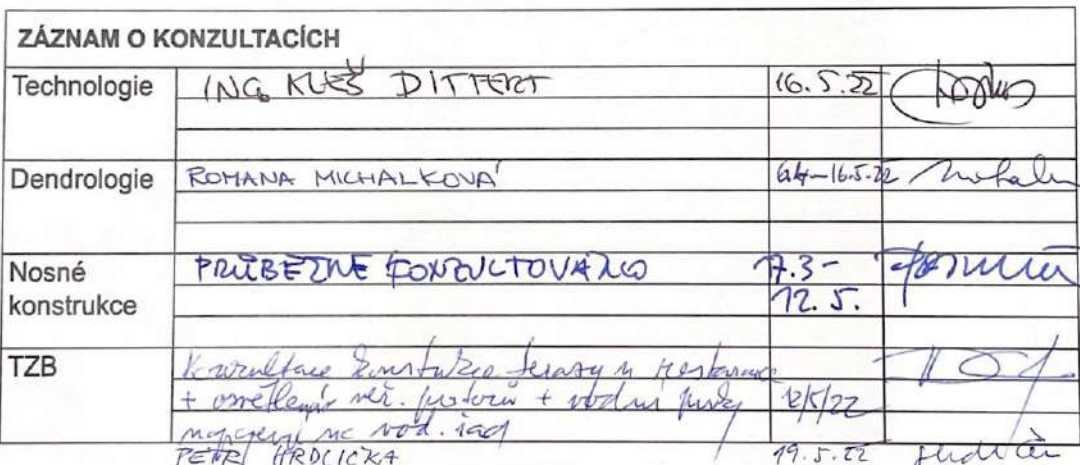 ZÁZNAM O KONZULTACÍCH
Technologie ING. KLEŠ DITTERT 16.5.22
Dendrologie ROMANA MICHALKOVÁ 16.5.22
Nosné PRŮBĚŽNĚ KONZULTOVÁNO 17.3-
konstrukce 12.5.
TZB Konzultace konstrukce terasy u restaurace
+ osvětlení veř. prostorů + vodní prvky 12/5/22
napojení na vod. řad
PETR HRDLIČKA 19.5.22